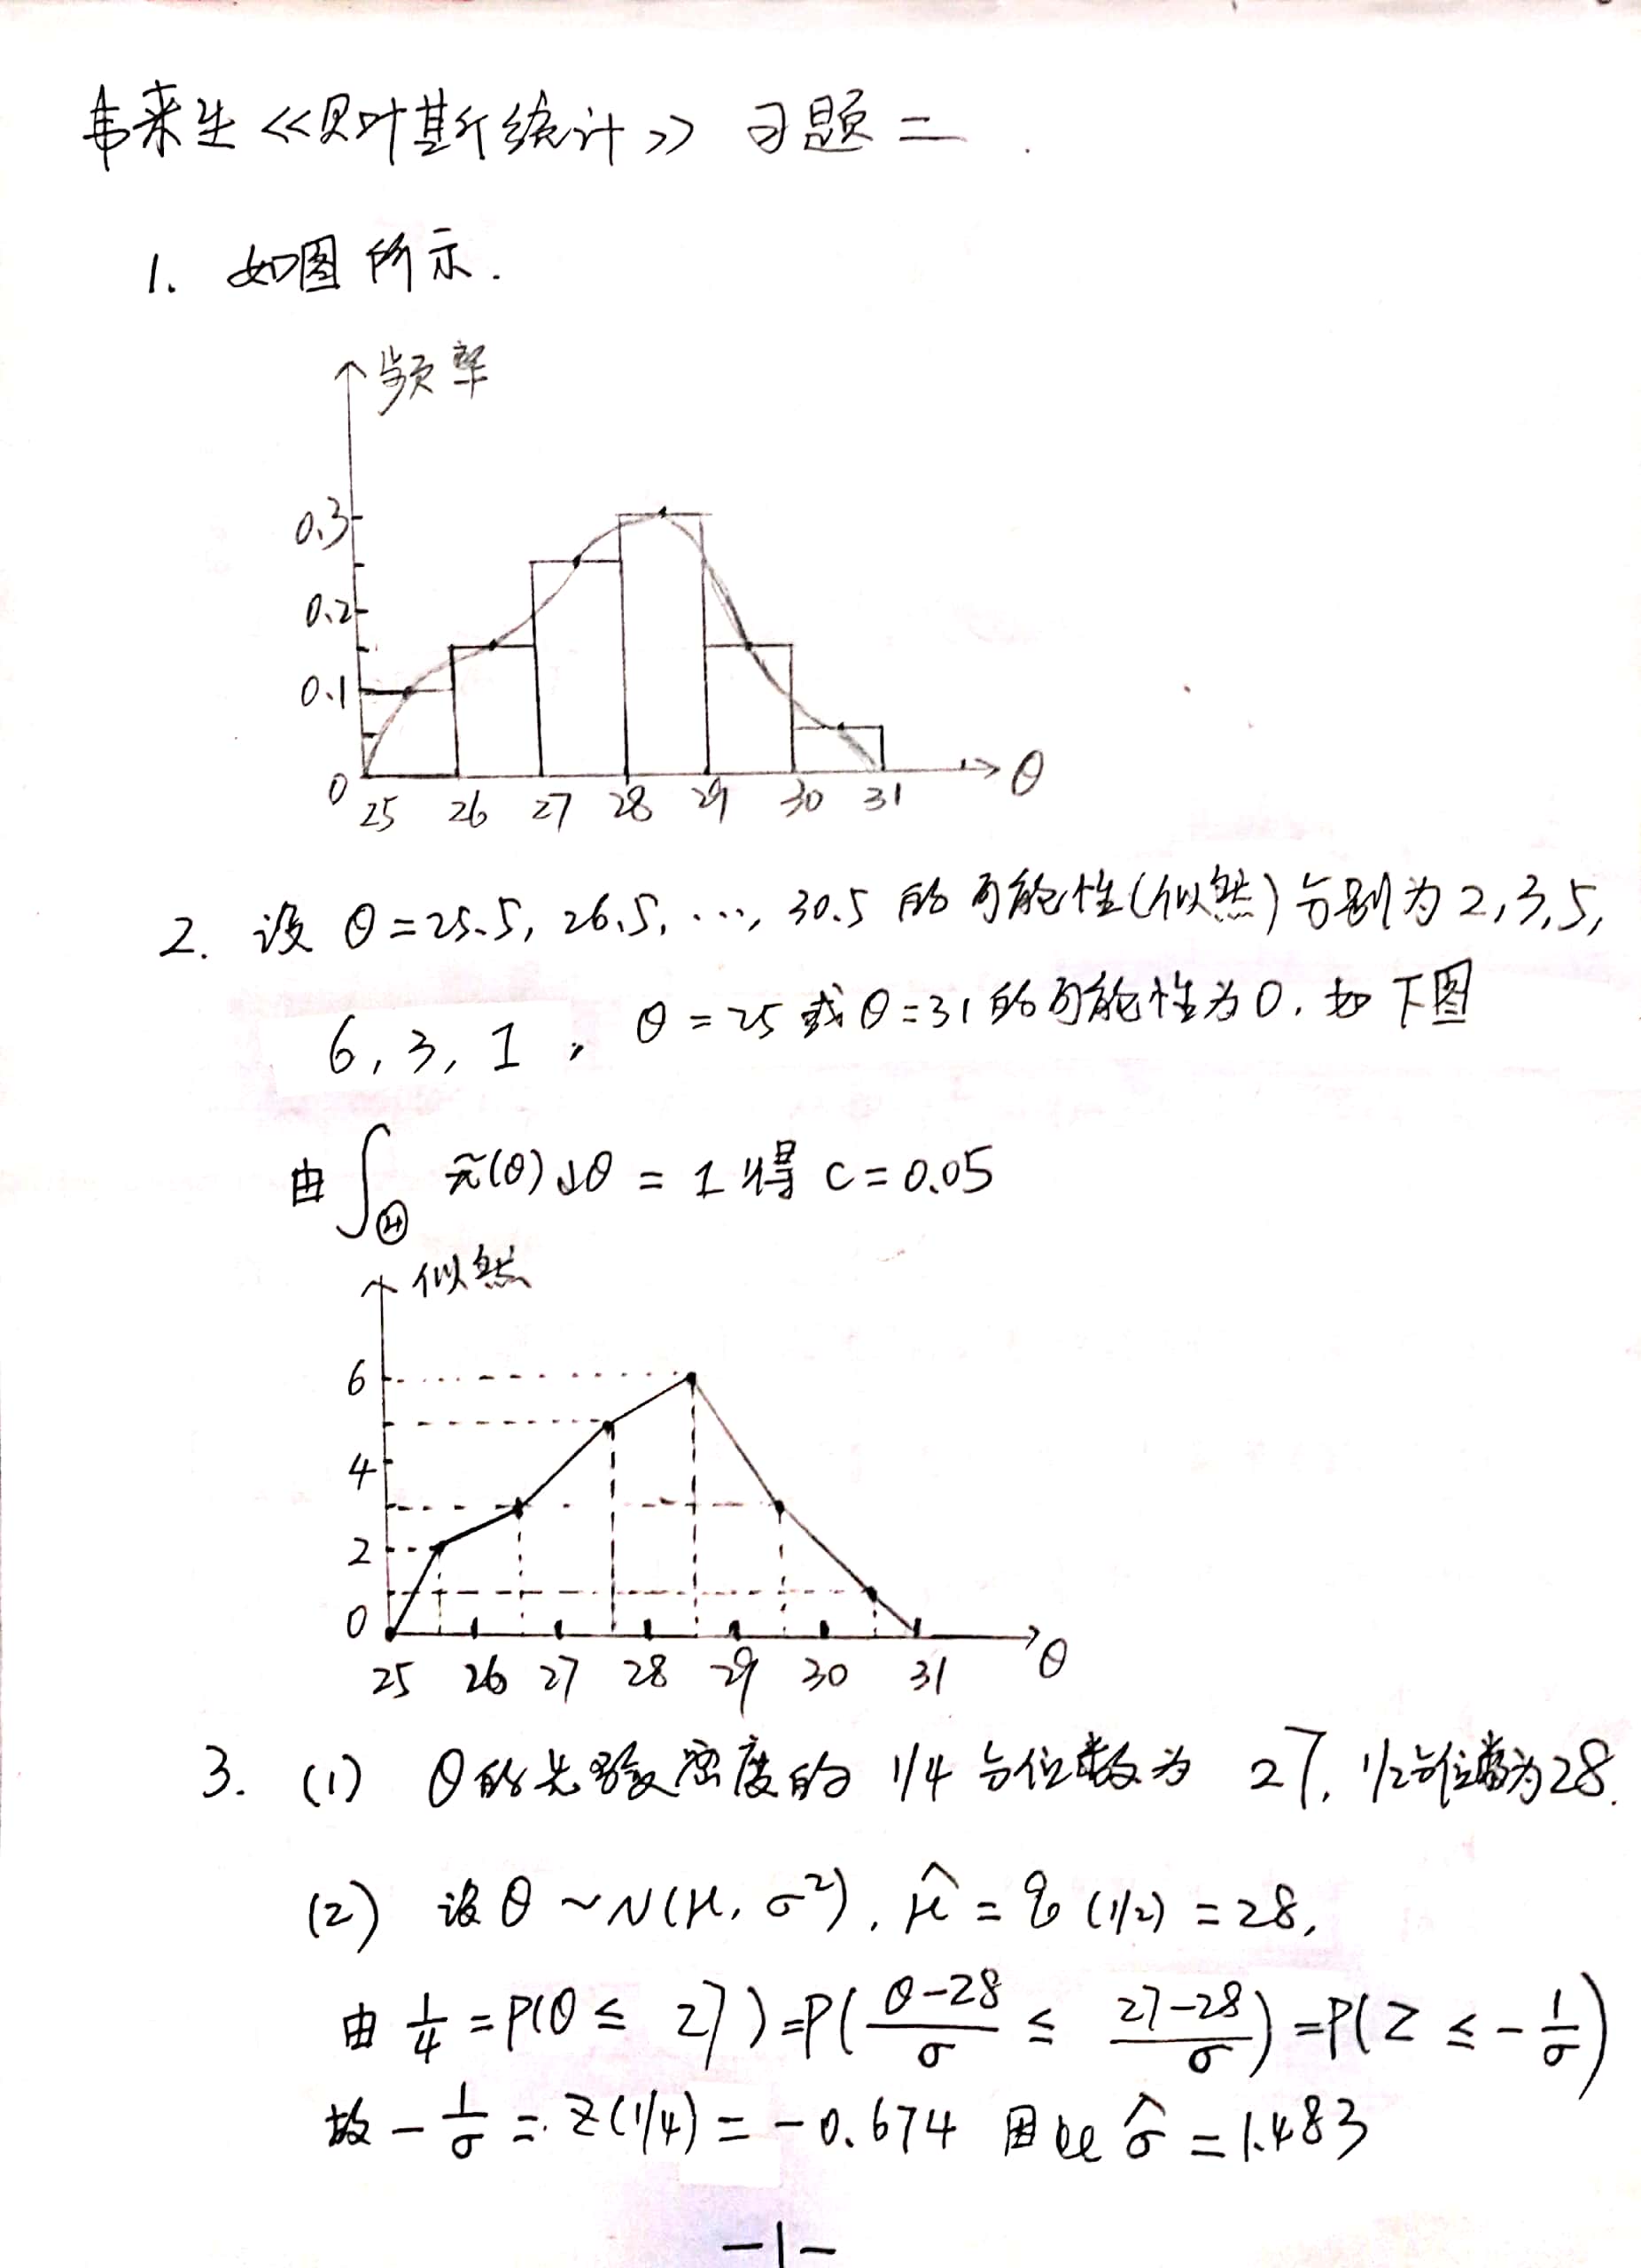 韦来生《贝叶斯统计》 习题二.
1. 如图所示.
频率
0.3
0.2
0.1
0
25 26 27 28 29 30 31 θ
2. 设 θ=25.5, 26.5, ..., 30.5 的可能性(似然)分别为2,3,5,
6, 3, 1, θ=25或θ=31的可能性为0. 如下图
由 ∫_Θ π̃(θ)dθ = 1 得 c=0.05
似然
6
4
2
0
25 26 27 28 29 30 31 θ
3. (1) θ的先验密度的 1/4 分位数为 27, 1/2分位数为28.
(2) 设 θ~N(μ, σ²), μ̂ = q(1/2) = 28,
由 1/4 = P(θ ≤ 27) = P((θ-28)/σ ≤ (27-28)/σ) = P(Z ≤ -1/σ)
故 -1/σ = Z(1/4) = -0.674 因此 σ̂ = 1.483
-1-